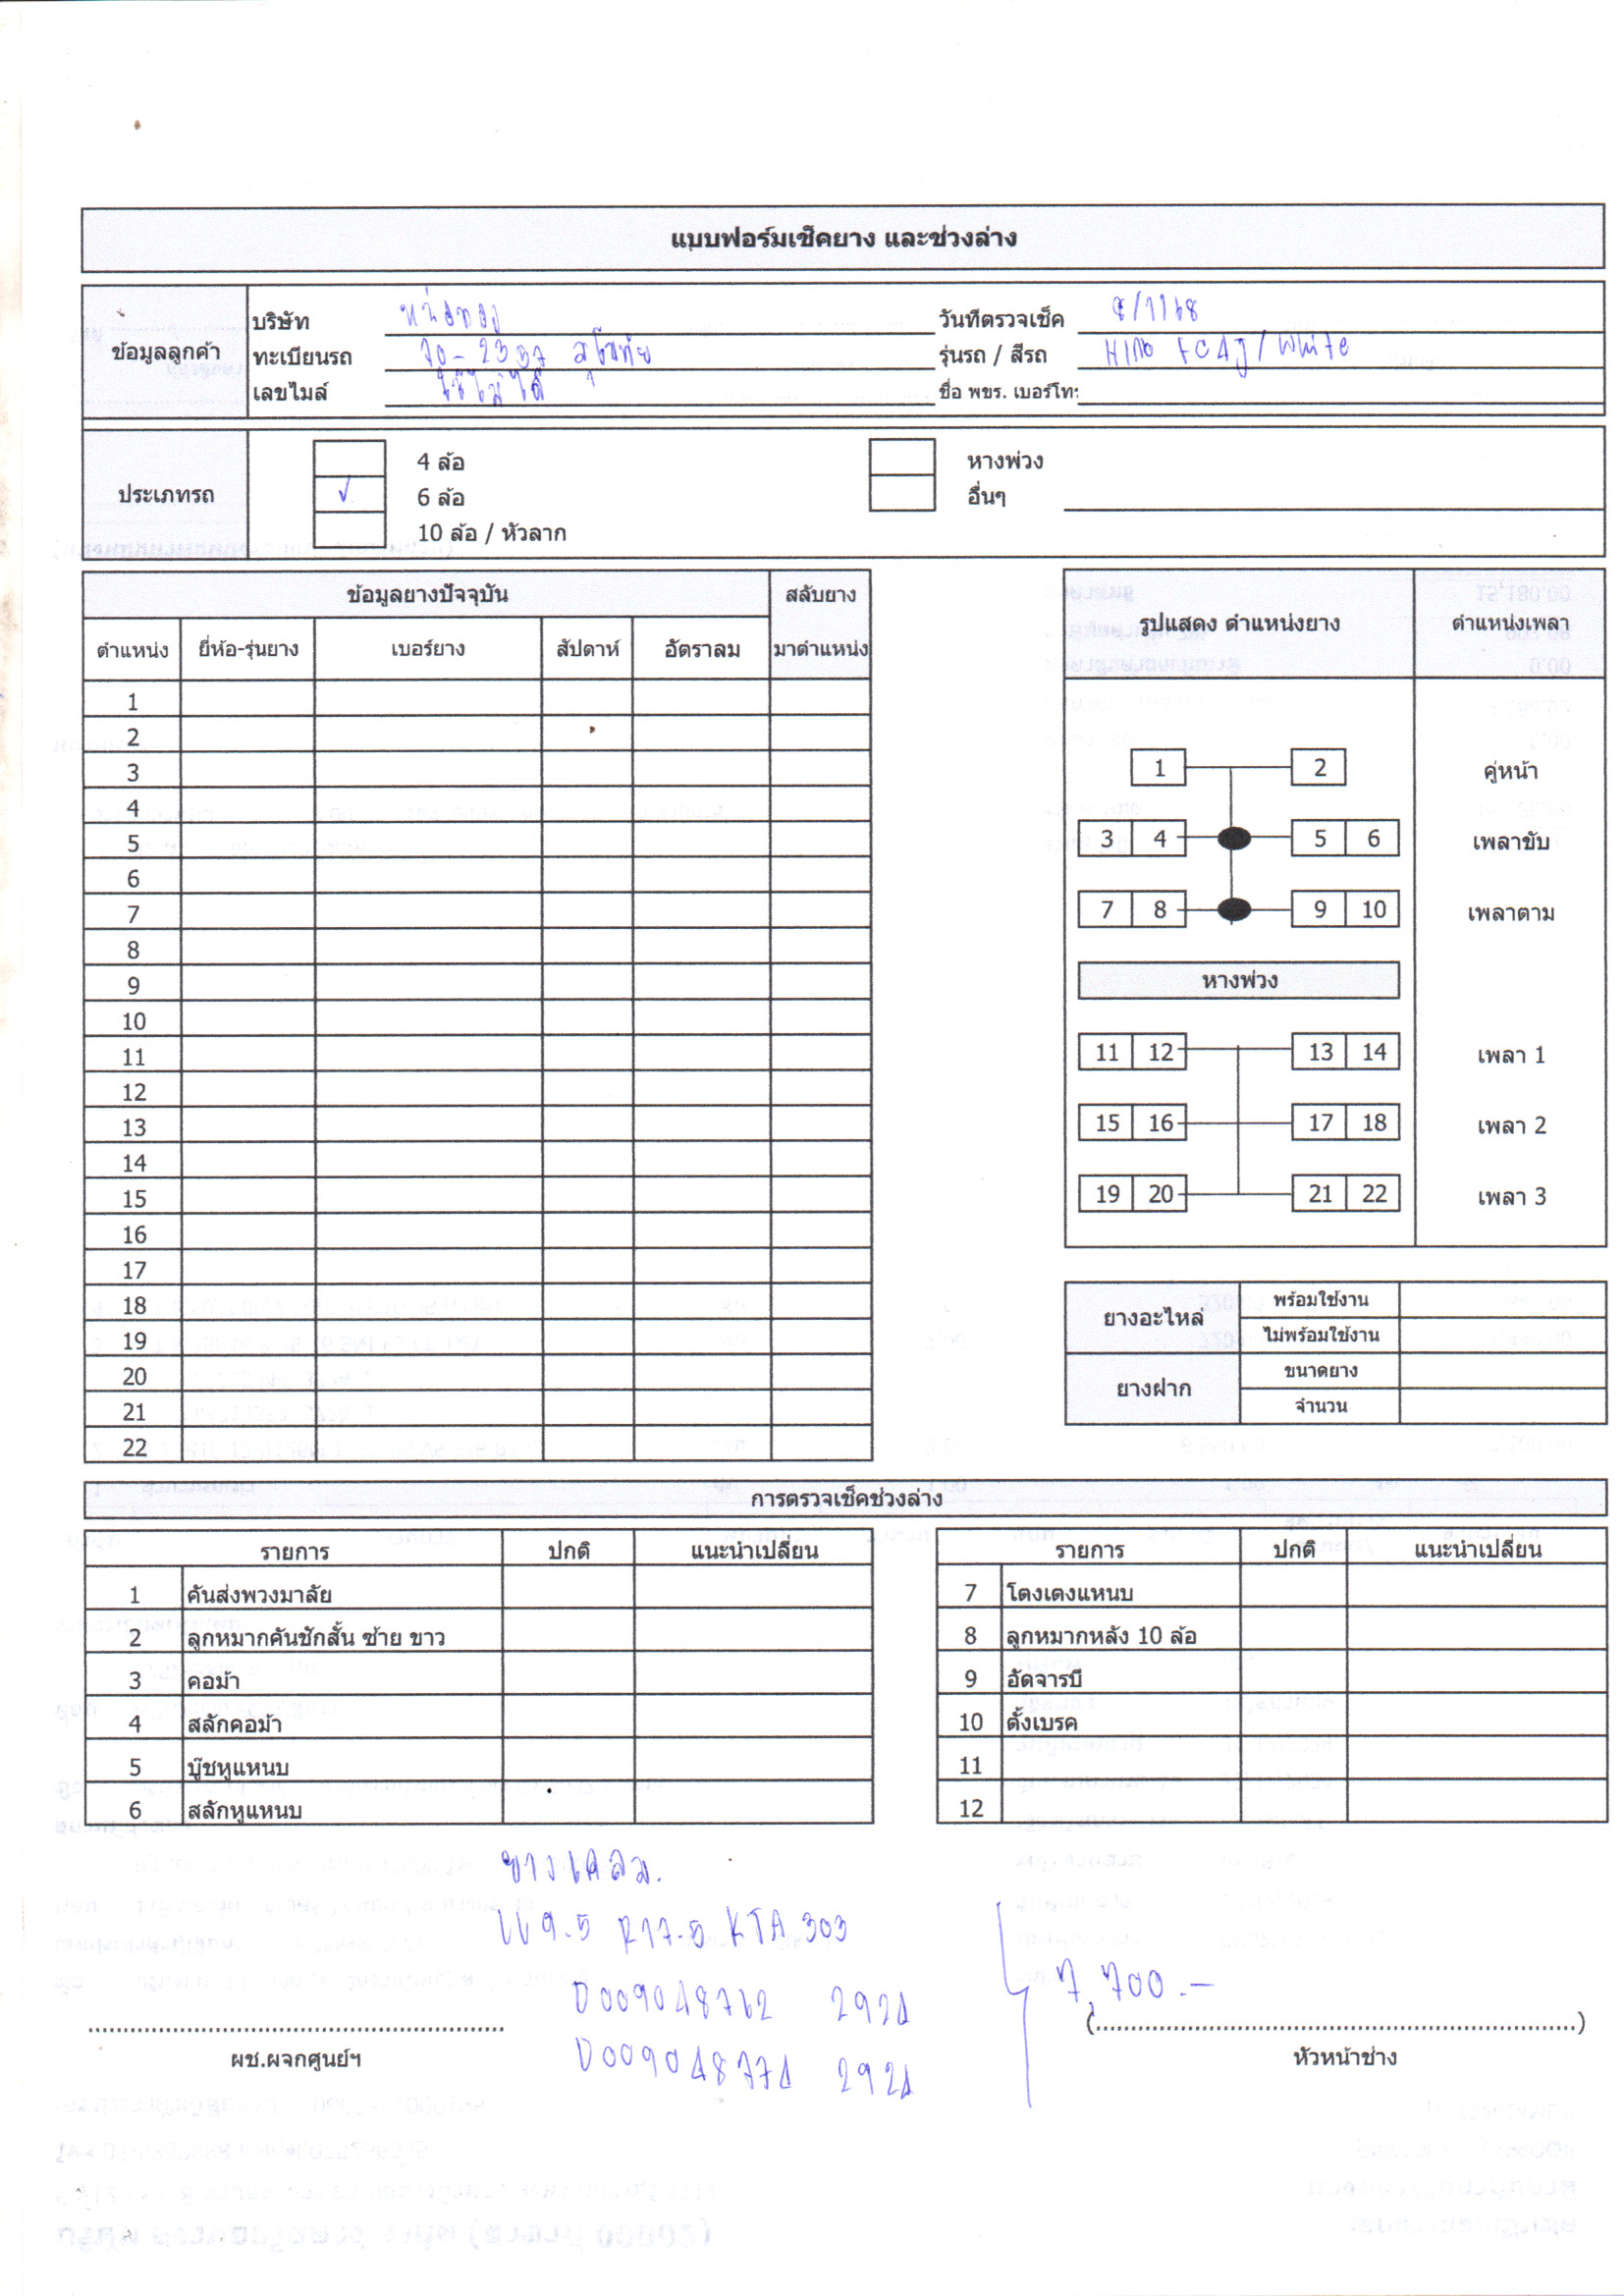 แบบฟอร์มเช็คยาง และช่วงล่าง
ข้อมูลลูกค้า
บริษัท หน่อทอง วันที่ตรวจเช็ค 8/1/68
ทะเบียนรถ 70-2337 สุโขทัย รุ่นรถ / สีรถ HINO FC4J/White
เลขไมล์ ใช้ไม่ได้ ชื่อ พขร. เบอร์โทร
ประเภทรถ
4 ล้อ หางพ่วง
✓ 6 ล้อ อื่นๆ
10 ล้อ / หัวลาก
ข้อมูลยางปัจจุบัน สลับยาง
ตำแหน่ง ยี่ห้อ-รุ่นยาง เบอร์ยาง สัปดาห์ อัตราลม มาตำแหน่ง
1
2
3
4
5
6
7
8
9
10
11
12
13
14
15
16
17
18
19
20
21
22
รูปแสดง ตำแหน่งยาง ตำแหน่งเพลา
1 2 คู่หน้า
3 4 5 6 เพลาขับ
7 8 9 10 เพลาตาม
หางพ่วง
11 12 13 14 เพลา 1
15 16 17 18 เพลา 2
19 20 21 22 เพลา 3
ยางอะไหล่ พร้อมใช้งาน
ไม่พร้อมใช้งาน
ยางฝาก ขนาดยาง
จำนวน
การตรวจเช็คช่วงล่าง
รายการ ปกติ แนะนำเปลี่ยน
1 คันส่งพวงมาลัย
2 ลูกหมากคันชักสั้น ซ้าย ขาว
3 คอม้า
4 สลักคอม้า
5 บู๊ชหูแหนบ
6 สลักหูแหนบ
รายการ ปกติ แนะนำเปลี่ยน
7 โตงเตงแหนบ
8 ลูกหมากหลัง 10 ล้อ
9 อัดจารบี
10 ตั้งเบรค
11
12
ยางเคลม.
9.5 R17.5 KTA 303
D009048762 2924
D009048774 2924
7,700.-
ผช.ผจกศูนย์ฯ
(................)
หัวหน้าช่าง